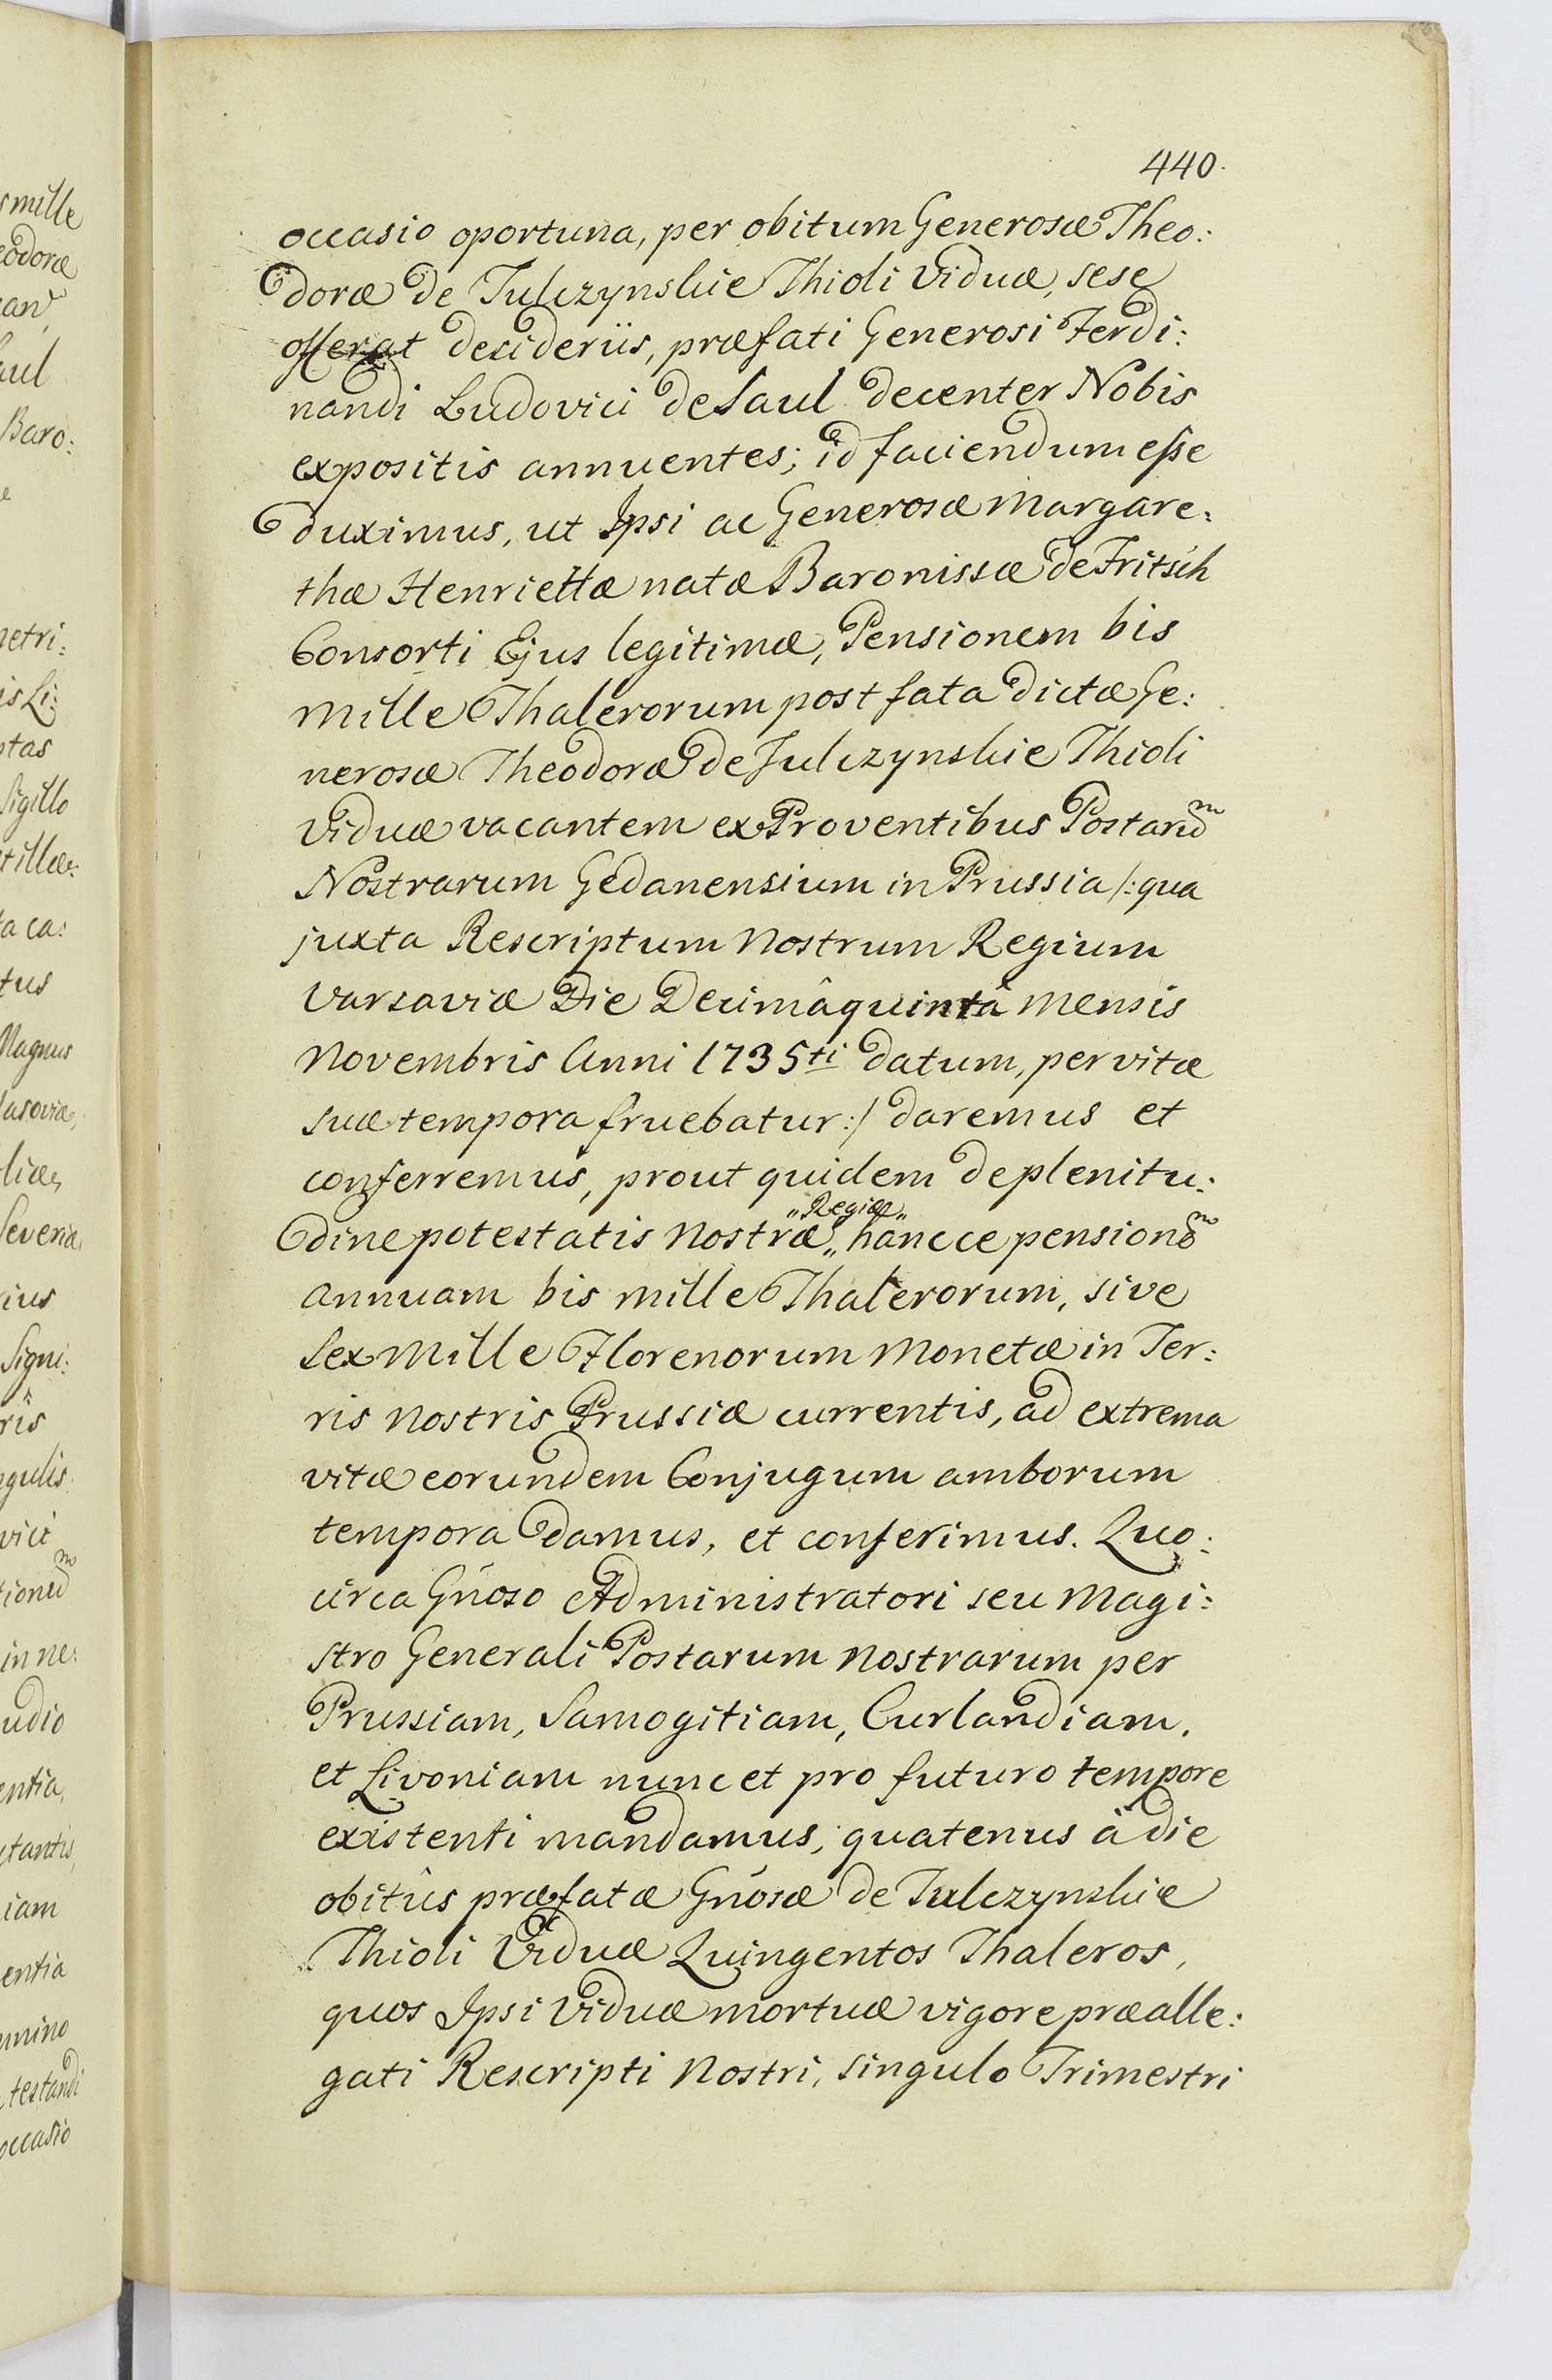 440.
occasio oportuna, per obitum Generosæ Theo:
doræ de Tulczynskie Thioli Viduæ, sese
offerat desideriis, præfati Generosi Ferdi:
nandi Ludovici de Saul decenter Nobis
expositis annuentes; id faciendum esse
duximus, ut Ipsi ac Generosæ Margare:
thæ Henriettæ natæ Baronissæ de Fritsch
Consorti Ejus legitimæ, Pensionem bis
mille Thalerorum post fata dictæ Ge:
nerosæ Theodoræ de Julczynskie Thioli
Viduæ vacantem ex Proventibus Postarum
Nostrarum Gedanensium in Prussia /: qua
juxta Rescriptum Nostrum Regium
Varsaviæ Die Decimâquintâ Mensis
Novembris Anni 1735ti datum, per vitæ
suæ tempora fruebatur :/ daremus et
conferremus, prout quidem de plenitu:
„Regiæ„
dine potestatis Nostræ„ hancce pensionem
annuam bis mille Thalerorum, sive
Sex Mille Florenorum Monetæ in Ter:
ris Nostris Prussiæ currentis, ad extrema
vitæ eorundem Conjugum amborum
tempora damus, et conferimus. Quo:
circa Gnoso Administratori seu Magi:
stro Generali Postarum Nostrarum per
Prussiam, Samogitiam, Curlandiam,
et Livoniam nunc et pro futuro tempore
existenti mandamus, quatenus à die
obitûs præfatæ Gnosæ de Tulczynskie
Thioli Viduæ Quingentos Thaleros,
quos Ipsi Viduæ mortuæ vigore præalle:
gati Rescripti Nostri, singulo Trimestri